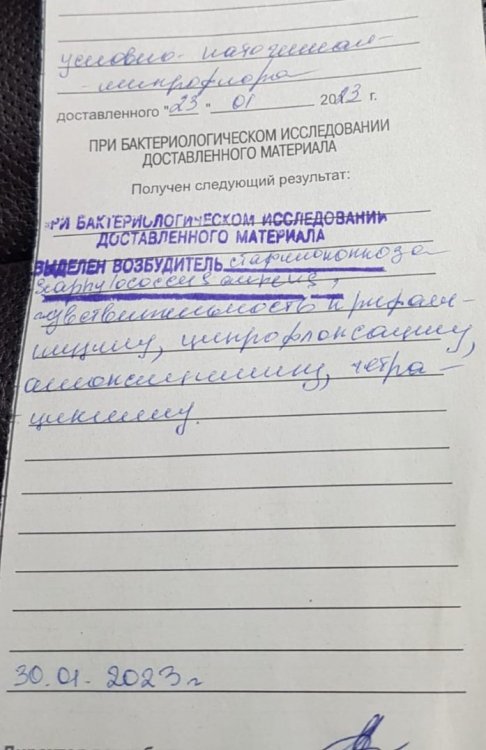 условно-патогенная
микрофлора
доставленного "23" 01 2023 г.
ПРИ БАКТЕРИОЛОГИЧЕСКОМ ИССЛЕДОВАНИИ
ДОСТАВЛЕННОГО МАТЕРИАЛА
Получен следующий результат:
ПРИ БАКТЕРИОЛОГИЧЕСКОМ ИССЛЕДОВАНИИ
ДОСТАВЛЕННОГО МАТЕРИАЛА
ВЫДЕЛЕН ВОЗБУДИТЕЛЬ стафилококкоза
Staphylococcus aureus,
чувствительность к рифам-
пицину, ципрофлоксацину,
амоксициллину, тетра-
циклину.
30.01.2023 г